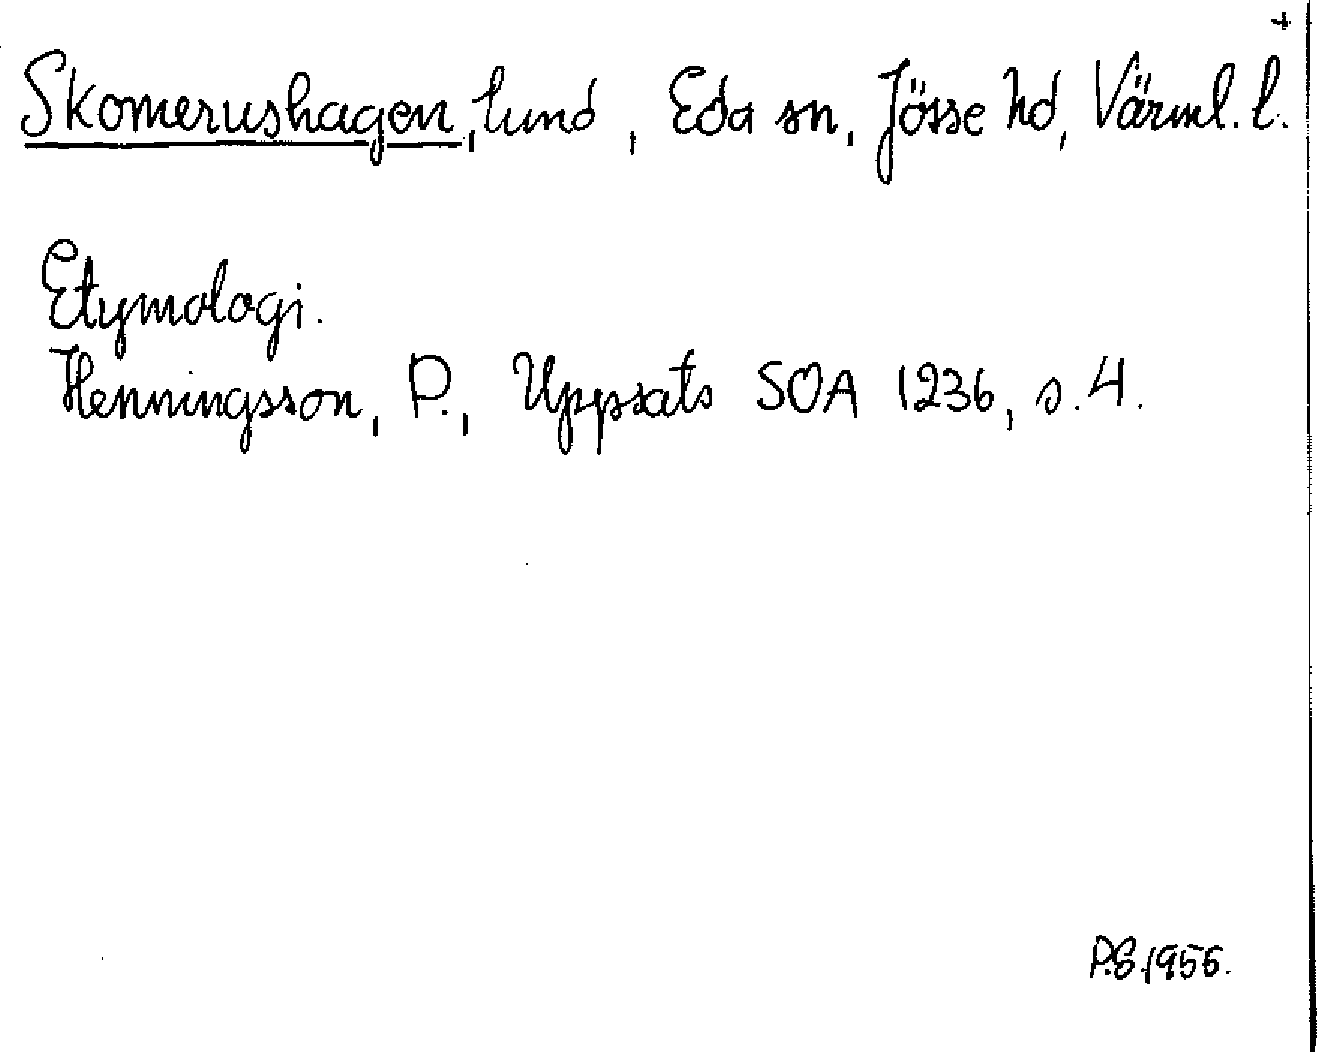 +
Skomerushagen, lund, Eda sn, Jösse hd, Värml. l.
Etymologi.
Henningsson, P., Uppsats SOA 1236, s. 4.
P.E. 1956.